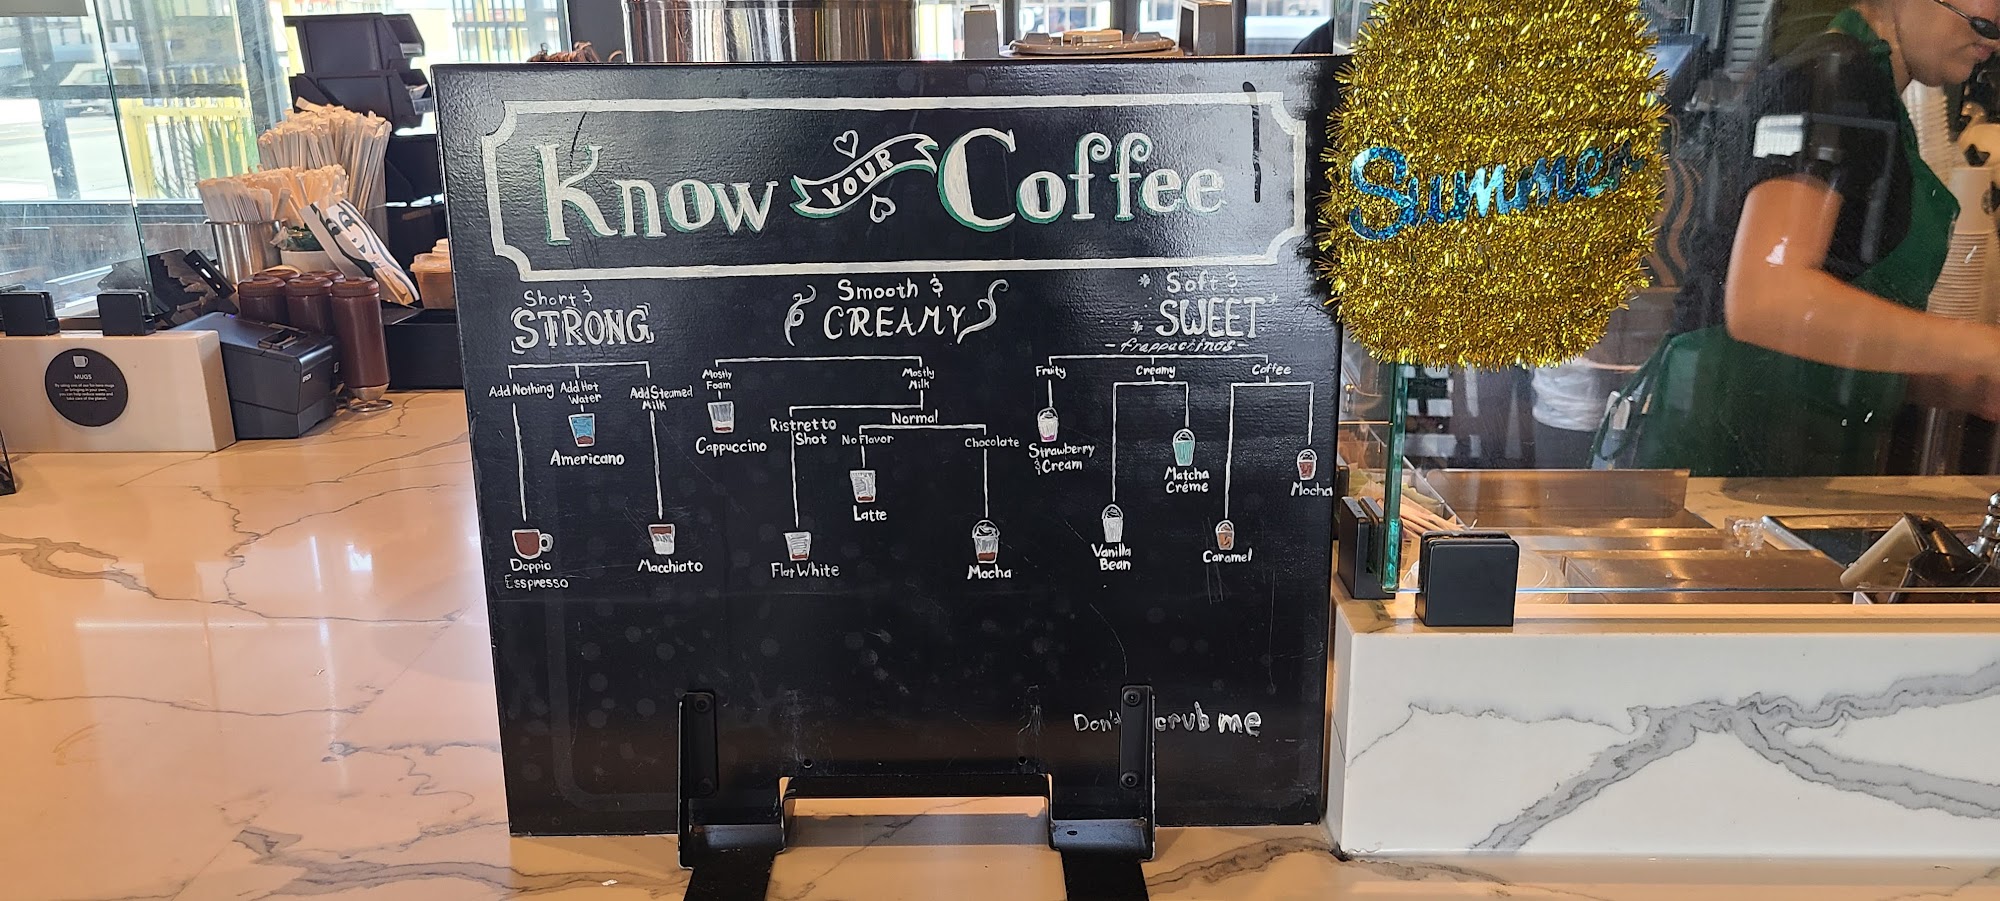 Know YOUR Coffee
Short &
STRONG
Add Nothing
Add Hot
Water
Add Steamed
Milk
Americano
Doppio
Esspresso
Macchiato
Smooth &
CREAMY
Mostly
Foam
Mostly
Milk
Cappuccino
Ristretto
Shot
Normal
No Flavor
Chocolate
Latte
Flat White
Mocha
Soft &
SWEET
-frappachinos-
Fruity
Creamy
Coffee
Strawberry
& Cream
Matcha
Créme
Mocha
Vanilla
Bean
Caramel
Don't
crub me
Summer
MUGS
EPSON